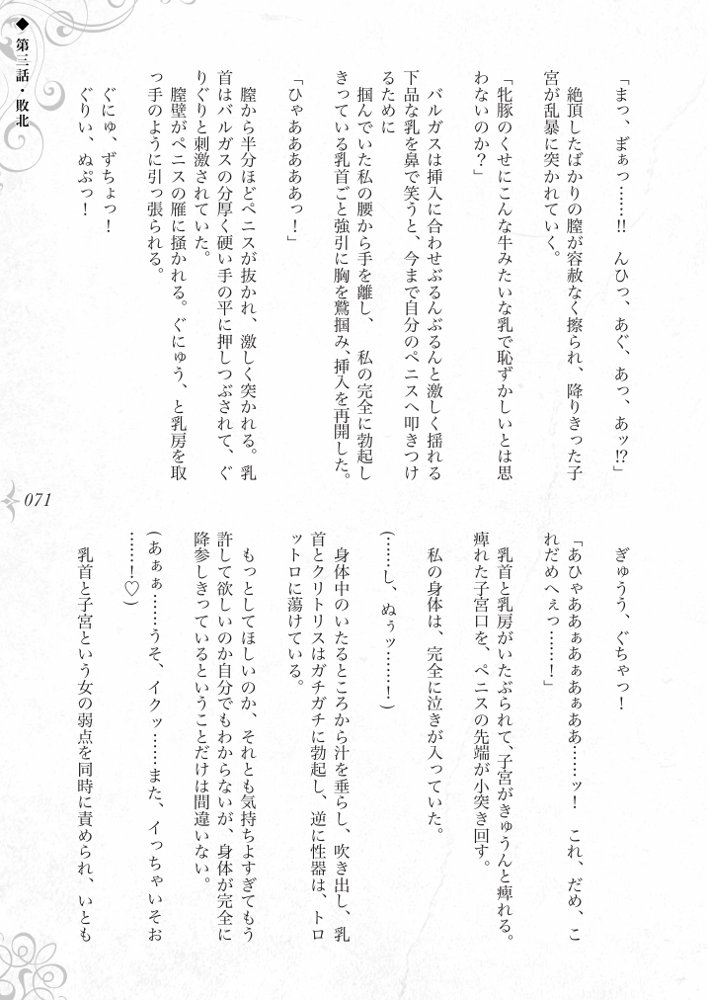 ◆ 第三話・敗北
「まっ、まぁっ……!! んひっ、あぐ、あっ、あッ!?」
絶頂したばかりの膣が容赦なく擦られ、降りきった子
宮が乱暴に突かれていく。
「牝豚のくせにこんな牛みたいな乳で恥ずかしいとは思
わないのか？」
バルガスは挿入に合わせぶるんぶるんと激しく揺れる
下品な乳を鼻で笑うと、今まで自分のペニスへ叩きつけ
るために
掴んでいた私の腰から手を離し、 私の完全に勃起し
きっている乳首ごと強引に胸を鷲掴み、挿入を再開した。
「ひゃあああああっ！」
膣から半分ほどペニスが抜かれ、激しく突かれる。乳
首はバルガスの分厚く硬い手の平に押しつぶされて、ぐ
りぐりと刺激されていた。
膣壁がペニスの雁に掻かれる。ぐにゅう、と乳房を取
っ手のように引っ張られる。
ぐにゅ、ずちょっ！
ぐりぃ、ぬぷっ！
ぎゅうう、ぐちゃっ！
「あひゃああぁあぁあぁああ……ッ！ これ、だめ、こ
れだめへぇっ……！」
乳首と乳房がいたぶられて、子宮がきゅうんと痺れる。
痺れた子宮口を、ペニスの先端が小突き回す。
私の身体は、完全に泣きが入っていた。
(……し、ぬぅッ……！)
身体中のいたるところから汁を垂らし、吹き出し、乳
首とクリトリスはガチガチに勃起し、逆に性器は、トロ
ットロに蕩けている。
もっとしてほしいのか、それとも気持ちよすぎてもう
許して欲しいのか自分でもわからないが、身体が完全に
降参しきっているということだけは間違いない。
(あぁぁ……うそ、イクッ……また、イっちゃいそお
……！♡)
乳首と子宮という女の弱点を同時に責められ、いとも
071